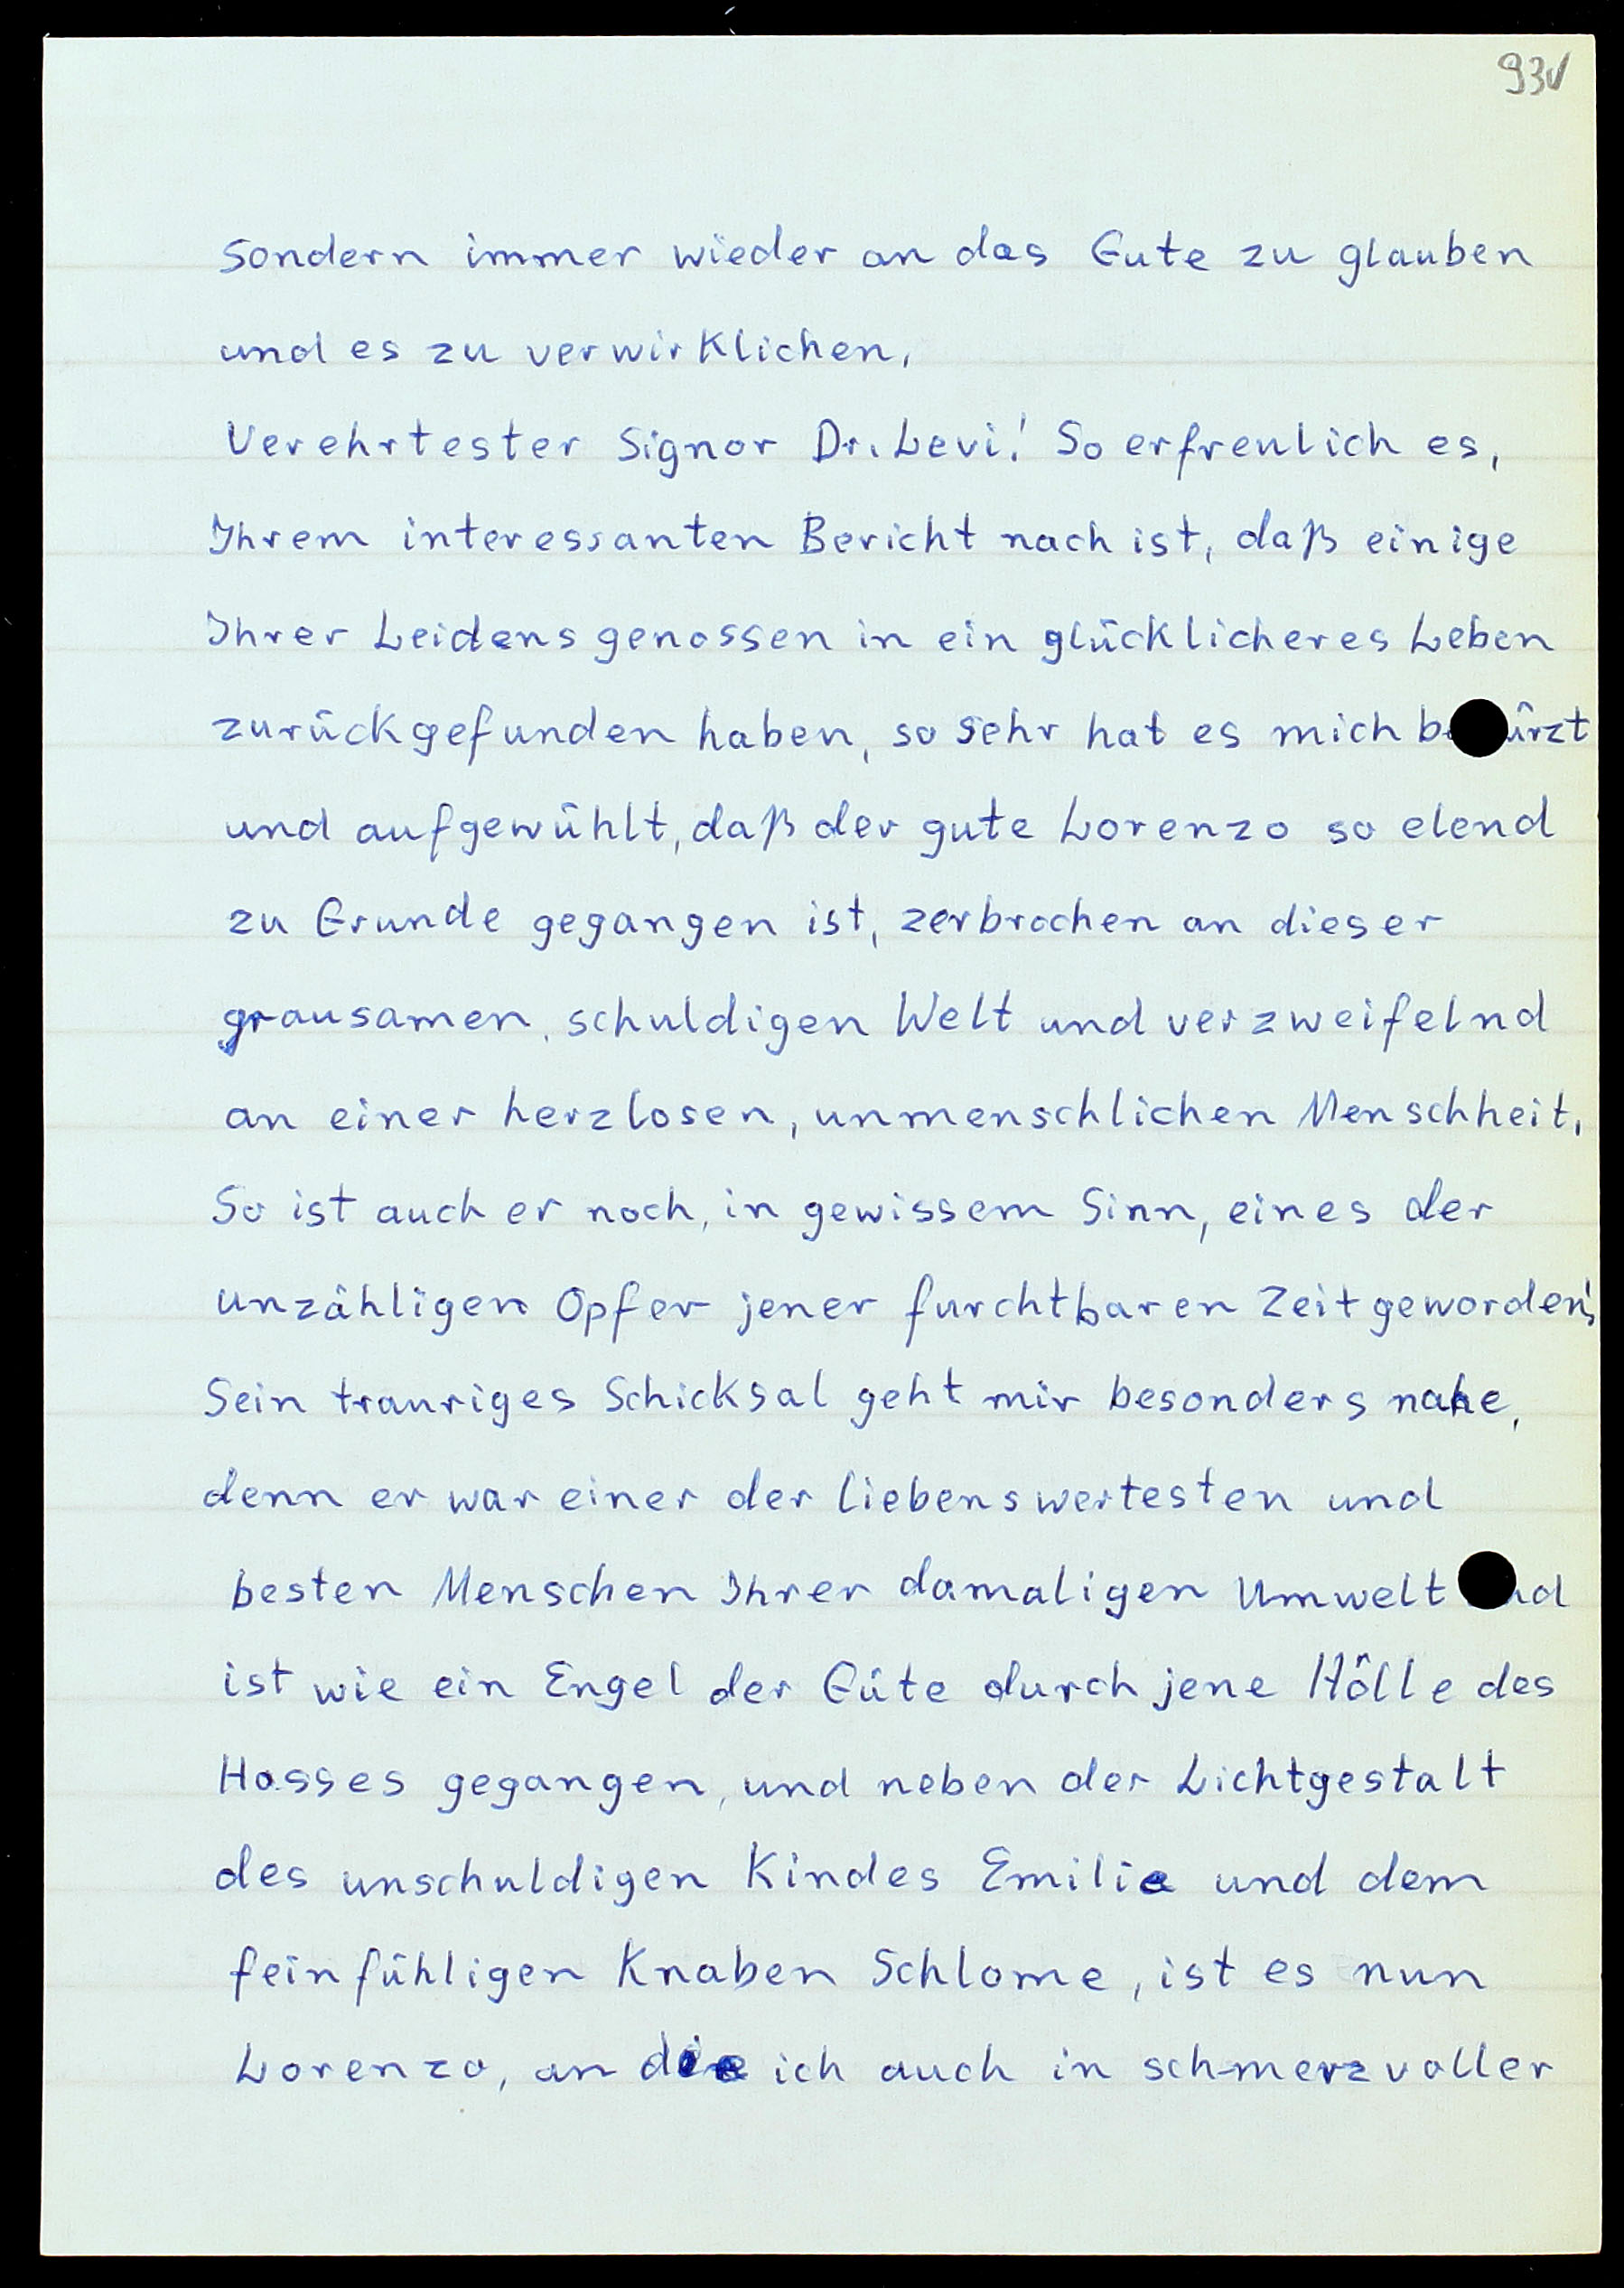 93v
sondern immer wieder an das Gute zu glauben
und es zu verwirklichen.
Verehrtester Signor Dr. Levi! So erfreulich es,
Ihrem interessanten Bericht nach ist, daß einige
Ihrer Leidensgenossen in ein glücklicheres Leben
zurückgefunden haben, so sehr hat es mich be ürzt
und aufgewühlt, daß der gute Lorenzo so elend
zu Grunde gegangen ist, zerbrochen an dieser
grausamen, schuldigen Welt und verzweifelnd
an einer herzlosen, unmenschlichen Menschheit.
So ist auch er noch, in gewissem Sinn, eines der
unzähligen Opfer jener furchtbaren Zeit geworden!
Sein trauriges Schicksal geht mir besonders nahe,
denn er war einer der liebenswertesten und
besten Menschen Ihrer damaligen Umwelt und
ist wie ein Engel der Güte durch jene Hölle des
Hasses gegangen, und neben der Lichtgestalt
des unschuldigen Kindes Emilia und dem
feinfühligen Knaben Schlome, ist es nun
Lorenzo, an die ich auch in schmerzvoller